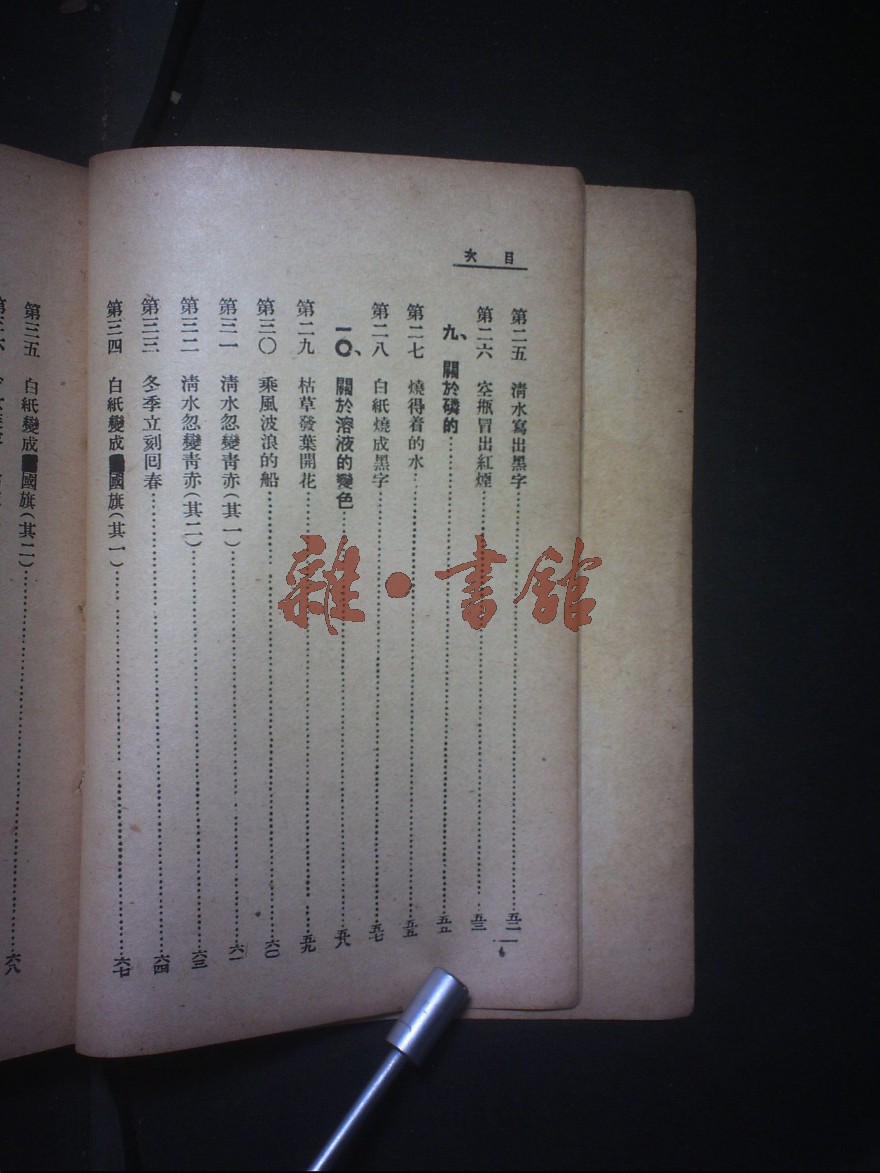 目次
第二五 清水寫出黑字……五二
第二六 空瓶冒出紅煙……五三
九、關於磷的……五五
第二七 燒得着的水……五五
第二八 白紙燒成黑字……五七
一〇、關於溶液的變色……五八
第二九 枯草發葉開花……五九
第三〇 乘風波浪的船……六〇
第三一 清水忽變靑赤（其一）……六一
第三二 淸水忽變靑赤（其二）……六三
第三三 冬季立刻囘春……六四
第三四 白紙變成國旗（其一）……六七
第三五 白紙變成國旗（其二）……六八
雜·書館